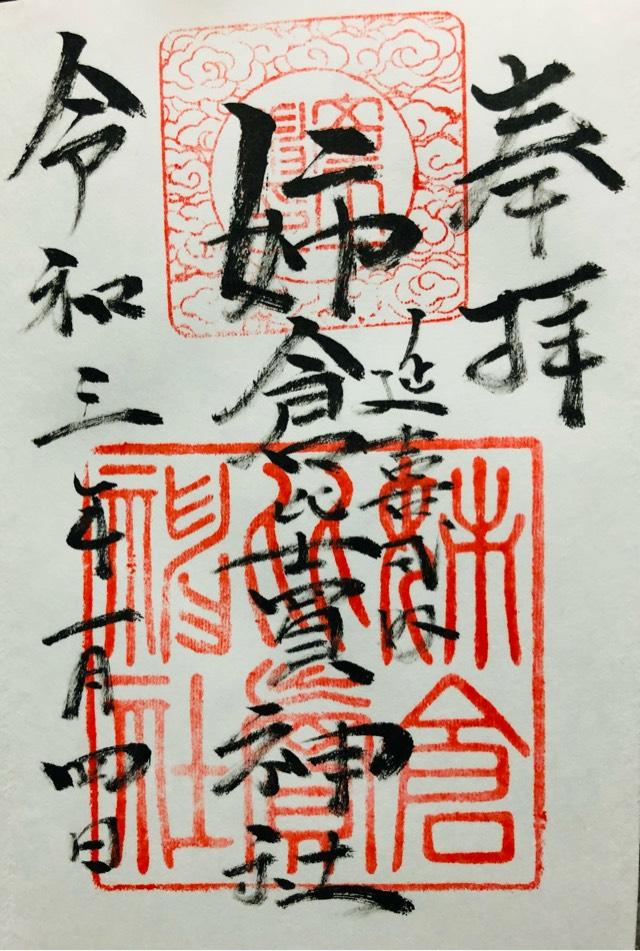 奉拝
延喜式内
姉倉比賣神社
令和三年一月四日
姉倉
比賣
神社